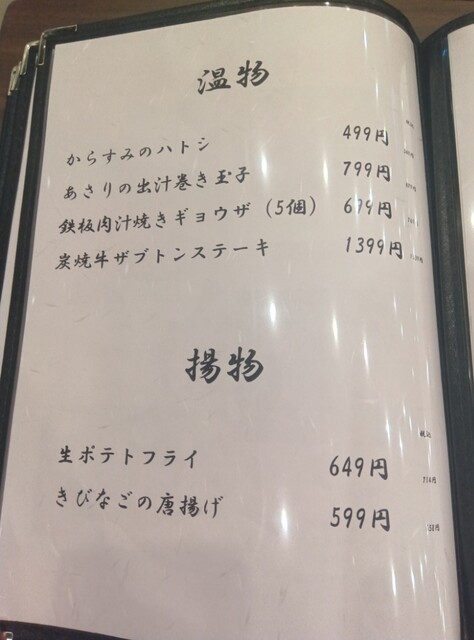 温物
からすみのハトシ 499円
あさりの出汁巻き玉子 799円
鉄板肉汁焼きギョウザ（5個） 699円
炭焼牛ザブトンステーキ 1399円
揚物
税込
生ポテトフライ 649円
きびなごの唐揚げ 599円